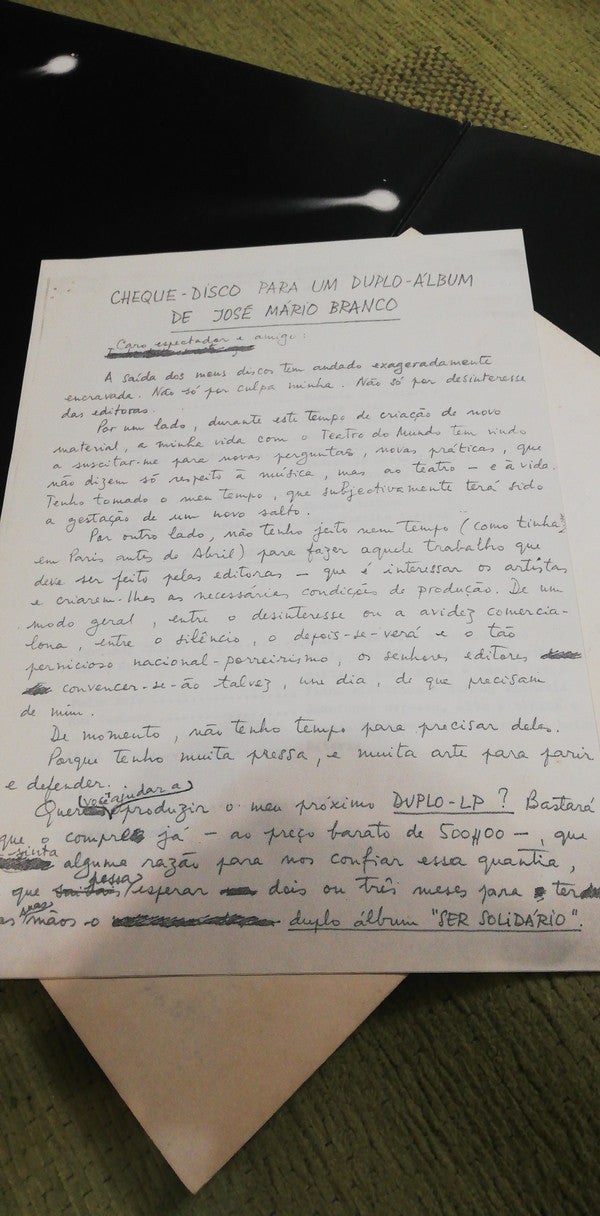 CHEQUE-DISCO PARA UM DUPLO-ÁLBUM
DE JOSÉ MÁRIO BRANCO
Caro espectador e amigo:
A saída dos meus discos tem andado exageradamente
encravada. Não só por culpa minha. Não só por desinteresse
das editoras.
Por um lado, durante este tempo de criação de novo
material, a minha vida com o Teatro do Mundo tem vindo
a suscitar-me para novas perguntas, novas práticas, que
não dizem só respeito à música, mas ao teatro — e à vida.
Tenho tomado o meu tempo, que subjectivamente terá sido
a gestação de um novo salto.
Por outro lado, não tenho jeito nem tempo (como tinha,
em Paris antes de Abril) para fazer aquele trabalho que
deve ser feito pelas editoras — que é interessar os artistas
e criarem-lhes as necessárias condições de produção. De um
modo geral, entre o desinteresse ou a avidez comercia-
lona, entre o silêncio, o depois-se-verá e o tão
pernicioso nacional-porreirismo, os senhores editores
convencer-se-ão talvez, um dia, de que precisam
de mim.
De momento, não tenho tempo para precisar deles.
Porque tenho muita pressa, e muita arte para parir
e defender.
Quer você ajudar a produzir o meu próximo DUPLO-LP? Bastará
que o compre já — ao preço barato de 500$00 —, que
sinta alguma razão para nos confiar essa quantia,
que possa esperar dois ou três meses para ter
as suas mãos o duplo álbum "SER SOLIDÁRIO".